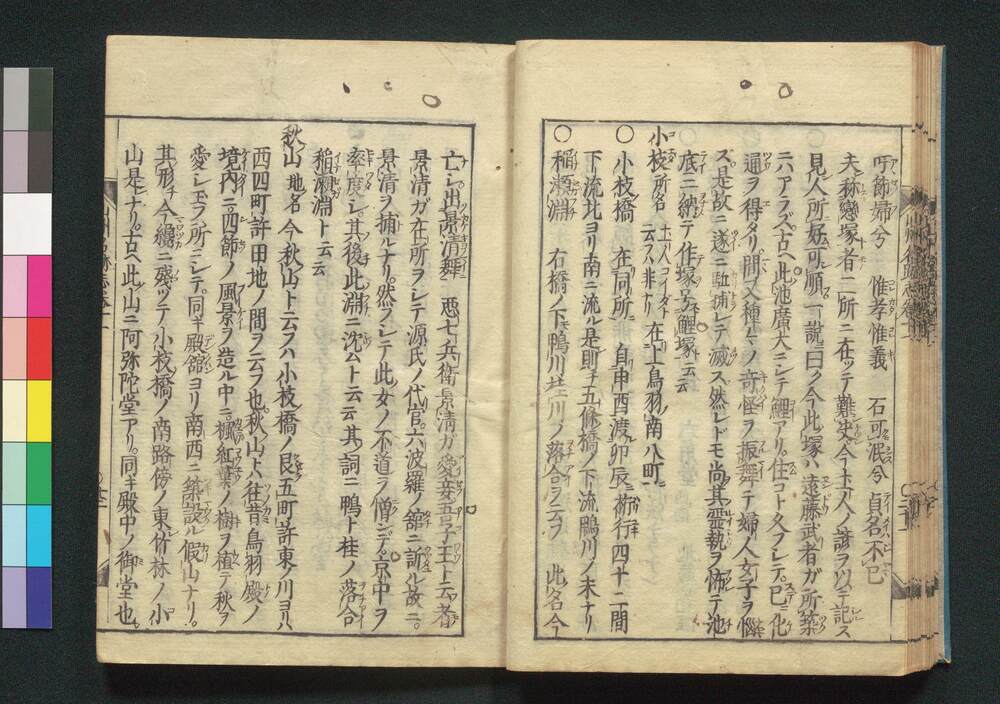 吁節婦兮 惟孝惟義 石可泯兮 貞名不已
夫秭戀塚者二所ニ在ッテ難決今土人ノ諺ヲ以テ記ス
見人所好可順一說ニ曰ク今此塚ハ遠藤武者ガ所築
ニハアラズ古ヘ此池廣大ニシテ鯉アリ住コト久フシテ已ニ化
通ヲ得タリ間又種々ノ奇怪ヲ振舞テ婦人女子ヲ惱
ス是故ニ遂ニ驅捕レテ滅ス然レドモ尚其靈執ヲ怖テ池
底ニ納テ作塚号鯉塚云云
小枝 所名 土人コイダト云フハ非ナリ 在上鳥羽南八町
○小枝橋 在同所 自申酉渡卯辰術行四十二間
下流北ヨリ南ニ流ル是則チ五條橋ノ下流鴨川ノ末ナリ
○稲瀬淵 右橋ノ下鴨川桂川ノ落合ヲ云フ 此名今
亡シ出景清舞 惡七兵衛景清ガ愛妾吾子王ト云者
景清ガ在所ヲシテ源氏ノ代官六波羅ノ舘ニ訓ル故ニ
景清ヲ捕ルナリ然フシテ此女ノ不道ヲ僧ンデ京中ヲ
率度シ其後此淵ニ沈ムト云云其詞ニ鴨ト桂ノ落合
稲瀬淵ト云云
秋山 地名 今秋山ト云フハ小枝橋ノ艮五町許東ノ川ヨリハ
西四町許田地ノ間ヲ云フ也秋山トハ往昔鳥羽殿ノ
境内ニ四節ノ風景ヲ造ル中ニ楓紅葉ノ樹ヲ植テ秋ヲ
愛シ玉フ所ニシテ同キ殿舘ヨリ南西ニ築設ル假山ナリ
其形チ今纔ニ殘ッテ小枝橋ノ南路傍ノ東竹林ノ小
山是ナリ古ヘ此山ニ阿弥陀堂アリ同キ殿中ノ御堂也